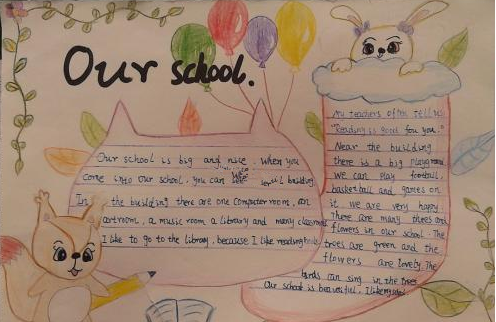 Our school.
Our school is big and nice. When you
come into our school, you can see school building
In the building there are one computer room, an
artroom, a music room a library and many classrooms
I like to go to the library, because I like reading books
My teachers often tell us
"Reading is good for you."
Near the building
there is a big playground
we can play football,
basketball and games on
it. we are very happy.
There are many trees and
flowers in our school. The
trees are green and the
flowers are lovely. The
birds can sing in the trees
Our school is beautiful, I like my school